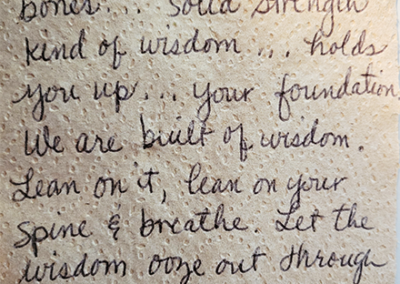 bones... Solid strength
kind of wisdom... holds
you up... your foundation.
We are built of wisdom.
Lean on it, lean on your
spine & breathe. Let the
wisdom ooze out through